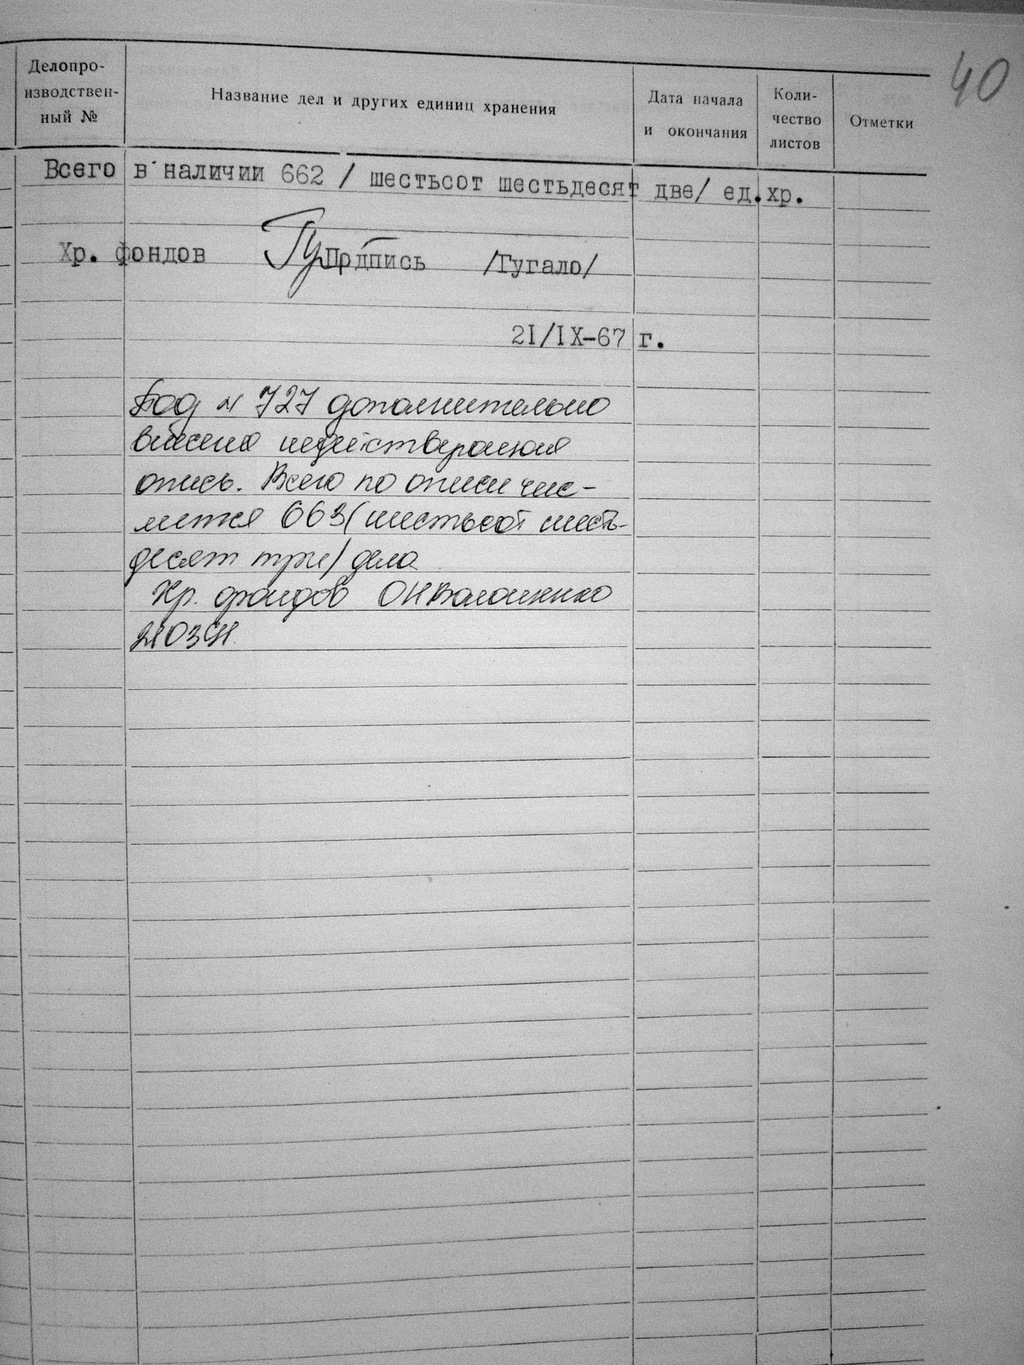 40
Делопро-
изводствен-
ный №
Название дел и других единиц хранения
Дата начала
и окончания
Коли-
чество
листов
Отметки
Всего в наличии 662 / шестьсот шестьдесят две/ ед.хр.
Хр. фондов Подпись /Гугало/
2I/IX-67 г.
Под № 727 дополнительно
внесена недействующая
опись. Всего по описи чис-
лится 663 (шестьсот шесть-
десят три/ дела
Хр. фондов